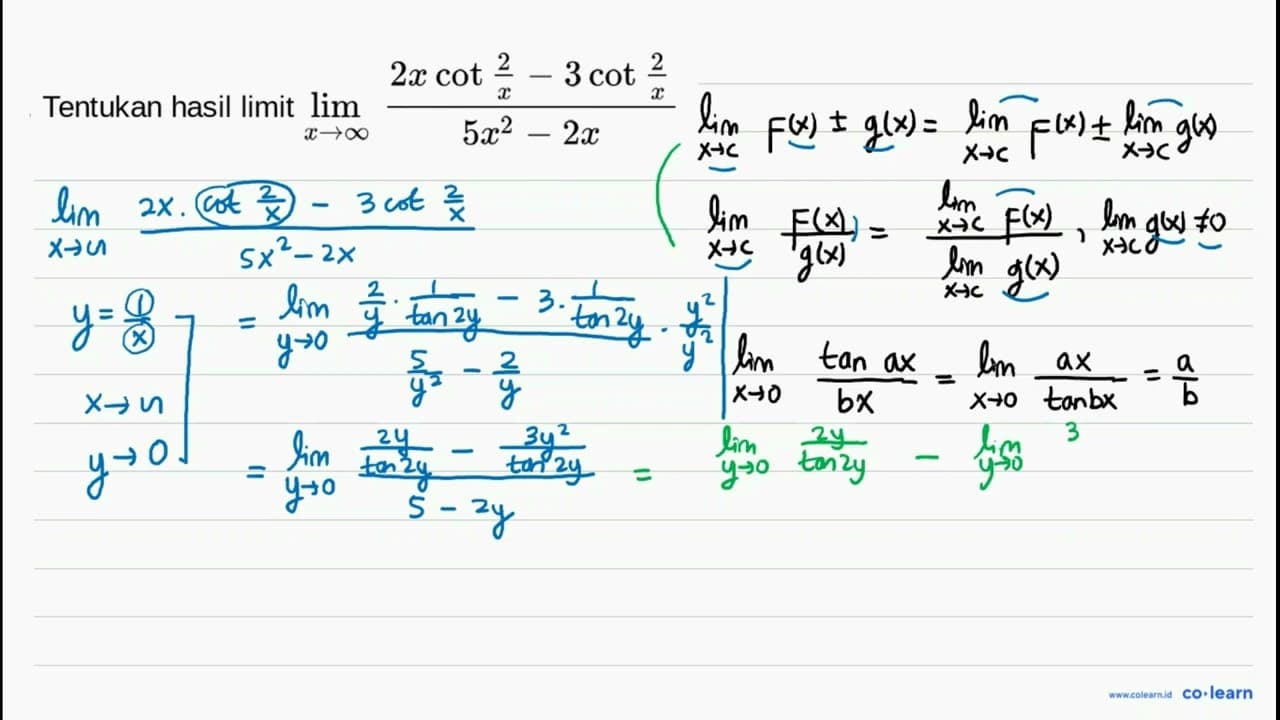 Tentukan hasil limit lim x→∞ (2x cot 2/x − 3 cot 2/x) / (5x² − 2x)
lim x→c F(x) ± g(x) = lim x→c F(x) ± lim x→c g(x)
lim x→c F(x)/g(x) = lim x→c F(x) / lim x→c g(x) , lim x→c g(x) ≠ 0
lim x→∞ (2x . cot 2/x − 3 cot 2/x) / (5x² − 2x)
y = 1/x
x → ∞
y → 0
= lim y→0 (2/y . 1/tan 2y − 3 . 1/tan 2y) / (5/y² − 2/y) . y²/y²
lim x→0 tan ax / bx = lim x→0 ax / tan bx = a/b
= lim y→0 (2y/tan 2y − 3y²/tan 2y) / (5 − 2y) = lim y→0 2y/tan 2y − lim y→0 3
www.colearn.id co·learn